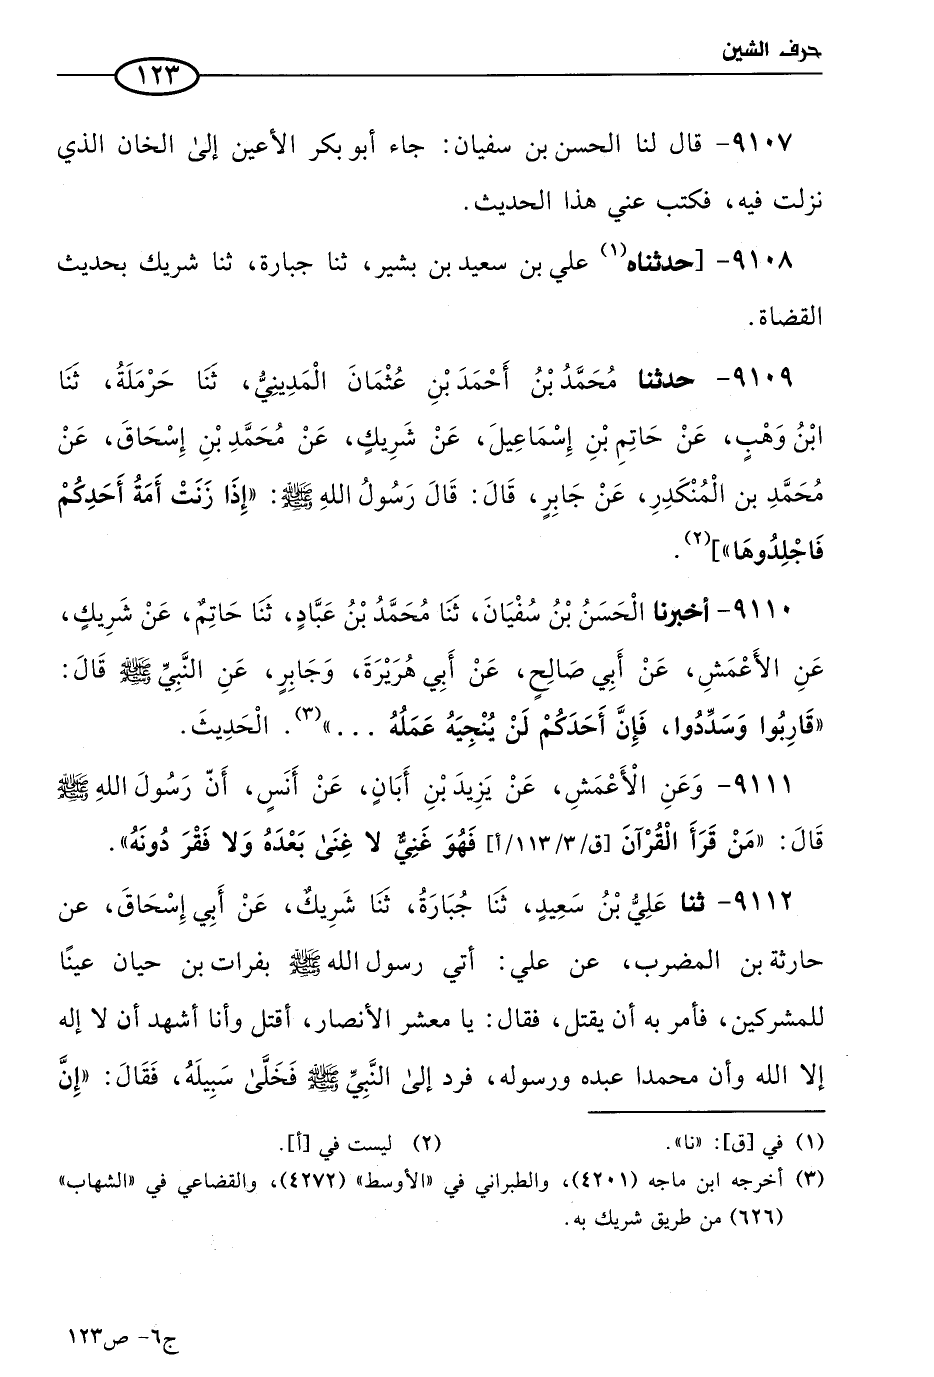 حرف الشين
١٢٣
٩١٠٧- قال لنا الحسن بن سفيان: جاء أبو بكر الأعين إلىٰ الخان الذي
نزلت فيه، فكتب عني هذا الحديث.
٩١٠٨- [حدثناه(١) علي بن سعيد بن بشير، ثنا جبارة، ثنا شريك بحديث
القضاة.
٩١٠٩- حدثنا مُحَمَّدُ بْنُ أَحْمَدَ بْنِ عُثْمَانَ الْمَدِينِيُّ، ثَنَا حَرْمَلَةُ، ثَنَا
ابْنُ وَهْبٍ، عَنْ حَاتِمِ بْنِ إِسْمَاعِيلَ، عَنْ شَرِيكٍ، عَنْ مُحَمَّدِ بْنِ إِسْحَاقَ، عَنْ
مُحَمَّدِ بن الْمُنْكَدِرِ، عَنْ جَابِرٍ، قَالَ: قَالَ رَسُولُ اللهِ ﷺ: «إِذَا زَنَتْ أَمَةُ أَحَدِكُمْ
فَاجْلِدُوهَا»](٢).
٩١١٠- أخبرنا الْحَسَنُ بْنُ سُفْيَانَ، ثَنَا مُحَمَّدُ بْنُ عَبَّادٍ، ثَنَا حَاتِمٌ، عَنْ شَرِيكٍ،
عَنِ الأَعْمَشِ، عَنْ أَبِي صَالِحٍ، عَنْ أَبِي هُرَيْرَةَ، وَجَابِرٍ، عَنِ النَّبِيِّ ﷺ قَالَ:
«قَارِبُوا وَسَدِّدُوا، فَإِنَّ أَحَدَكُمْ لَنْ يُنْجِيَهُ عَمَلُهُ ...»(٣). الْحَدِيثَ.
٩١١١- وَعَنِ الْأَعْمَشِ، عَنْ يَزِيدَ بْنِ أَبَانٍ، عَنْ أَنَسٍ، أَنّ رَسُولَ اللهِ ﷺ
قَالَ: «مَنْ قَرَأَ الْقُرْآنَ [ق/٣/١١٣/أ] فَهُوَ غَنِيٌّ لا غِنَىٰ بَعْدَهُ وَلا فَقْرَ دُونَهُ».
٩١١٢- ثنا عَلِيُّ بْنُ سَعِيدٍ، ثَنَا جُبَارَةُ، ثَنَا شَرِيكٌ، عَنْ أَبِي إِسْحَاقَ، عن
حارثة بن المضرب، عن علي: أتي رسول الله ﷺ بفرات بن حيان عينًا
للمشركين، فأمر به أن يقتل، فقال: يا معشر الأنصار، أقتل وأنا أشهد أن لا إله
إلا الله وأن محمدا عبده ورسوله، فرد إلىٰ النَّبِيِّ ﷺ فَخَلَّىٰ سَبِيلَهُ، فَقَالَ: «إِنَّ
(١) في [ق]: «نا». (٢) ليست في [أ].
(٣) أخرجه ابن ماجه (٤٢٠١)، والطبراني في «الأوسط» (٤٢٧٢)، والقضاعي في «الشهاب»
(٦٢٦) من طريق شريك به.
ج٦- ص١٢٣